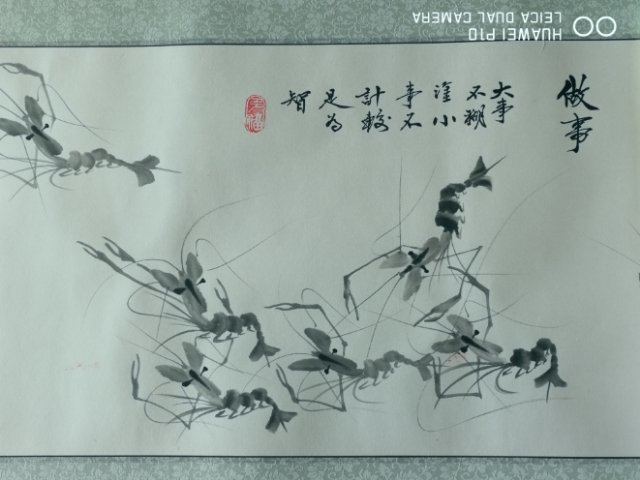 做事
大事
不糊
塗小
事不
計較
是為
智
HUAWEI P10
LEICA DUAL CAMERA